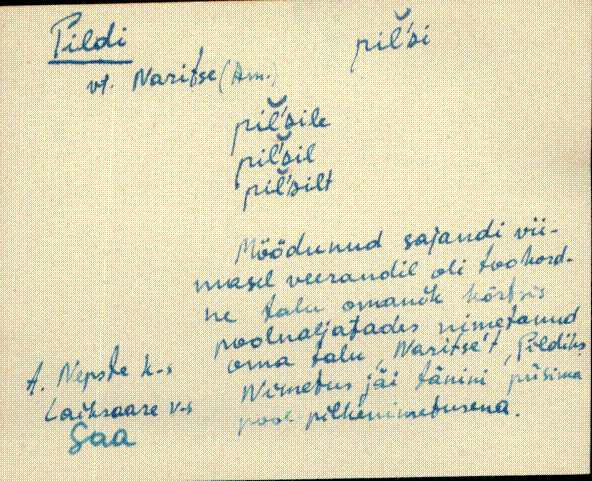 Pildi
pil̆'si
vt. Naritse (Am.)
pil̆'sile
pil̆'sil
pil̆'silt
Möödunud sajandi vii-
masel veerandil oli tookord-
ne talu omanik kõrtsis
poolnaljatades nimetanud
oma talu „Naritse't„ Pildiks
Nimetus jäi tänini püsima
pool-pilkenimetusena.
A. Nepste k-s
Laiksaare v-s
Saa